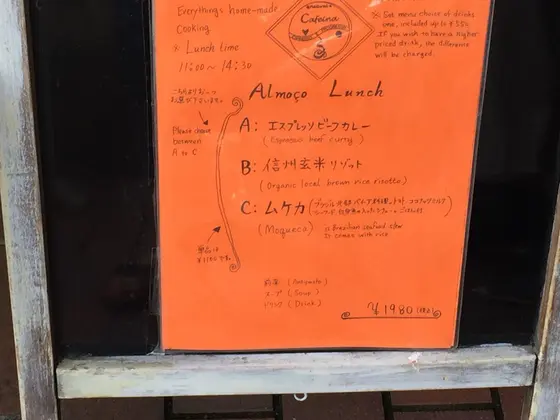 Everythings home-made
Cooking
※ Lunch time
11:00～14:30
Cafeína
※ Set menu choice of drinks
one, included up to ¥550
If you wish to have a higher
priced drink, the difference
will be charged.
Almoço Lunch
こちらよりお一つ
お選び下さいませ。
Please choose
between
A to C
A: エスプレッソビーフカレー
(Espresso beef curry)
B: 信州玄米リゾット
(Organic local brown rice risotto)
C: ムケカ
(Moqueca)
is Brazilian seafood stew
It comes with rice
単品は
¥1150です。
前菜 (Antipasto)
スープ (Soup)
ドリンク (Drink)
¥1980